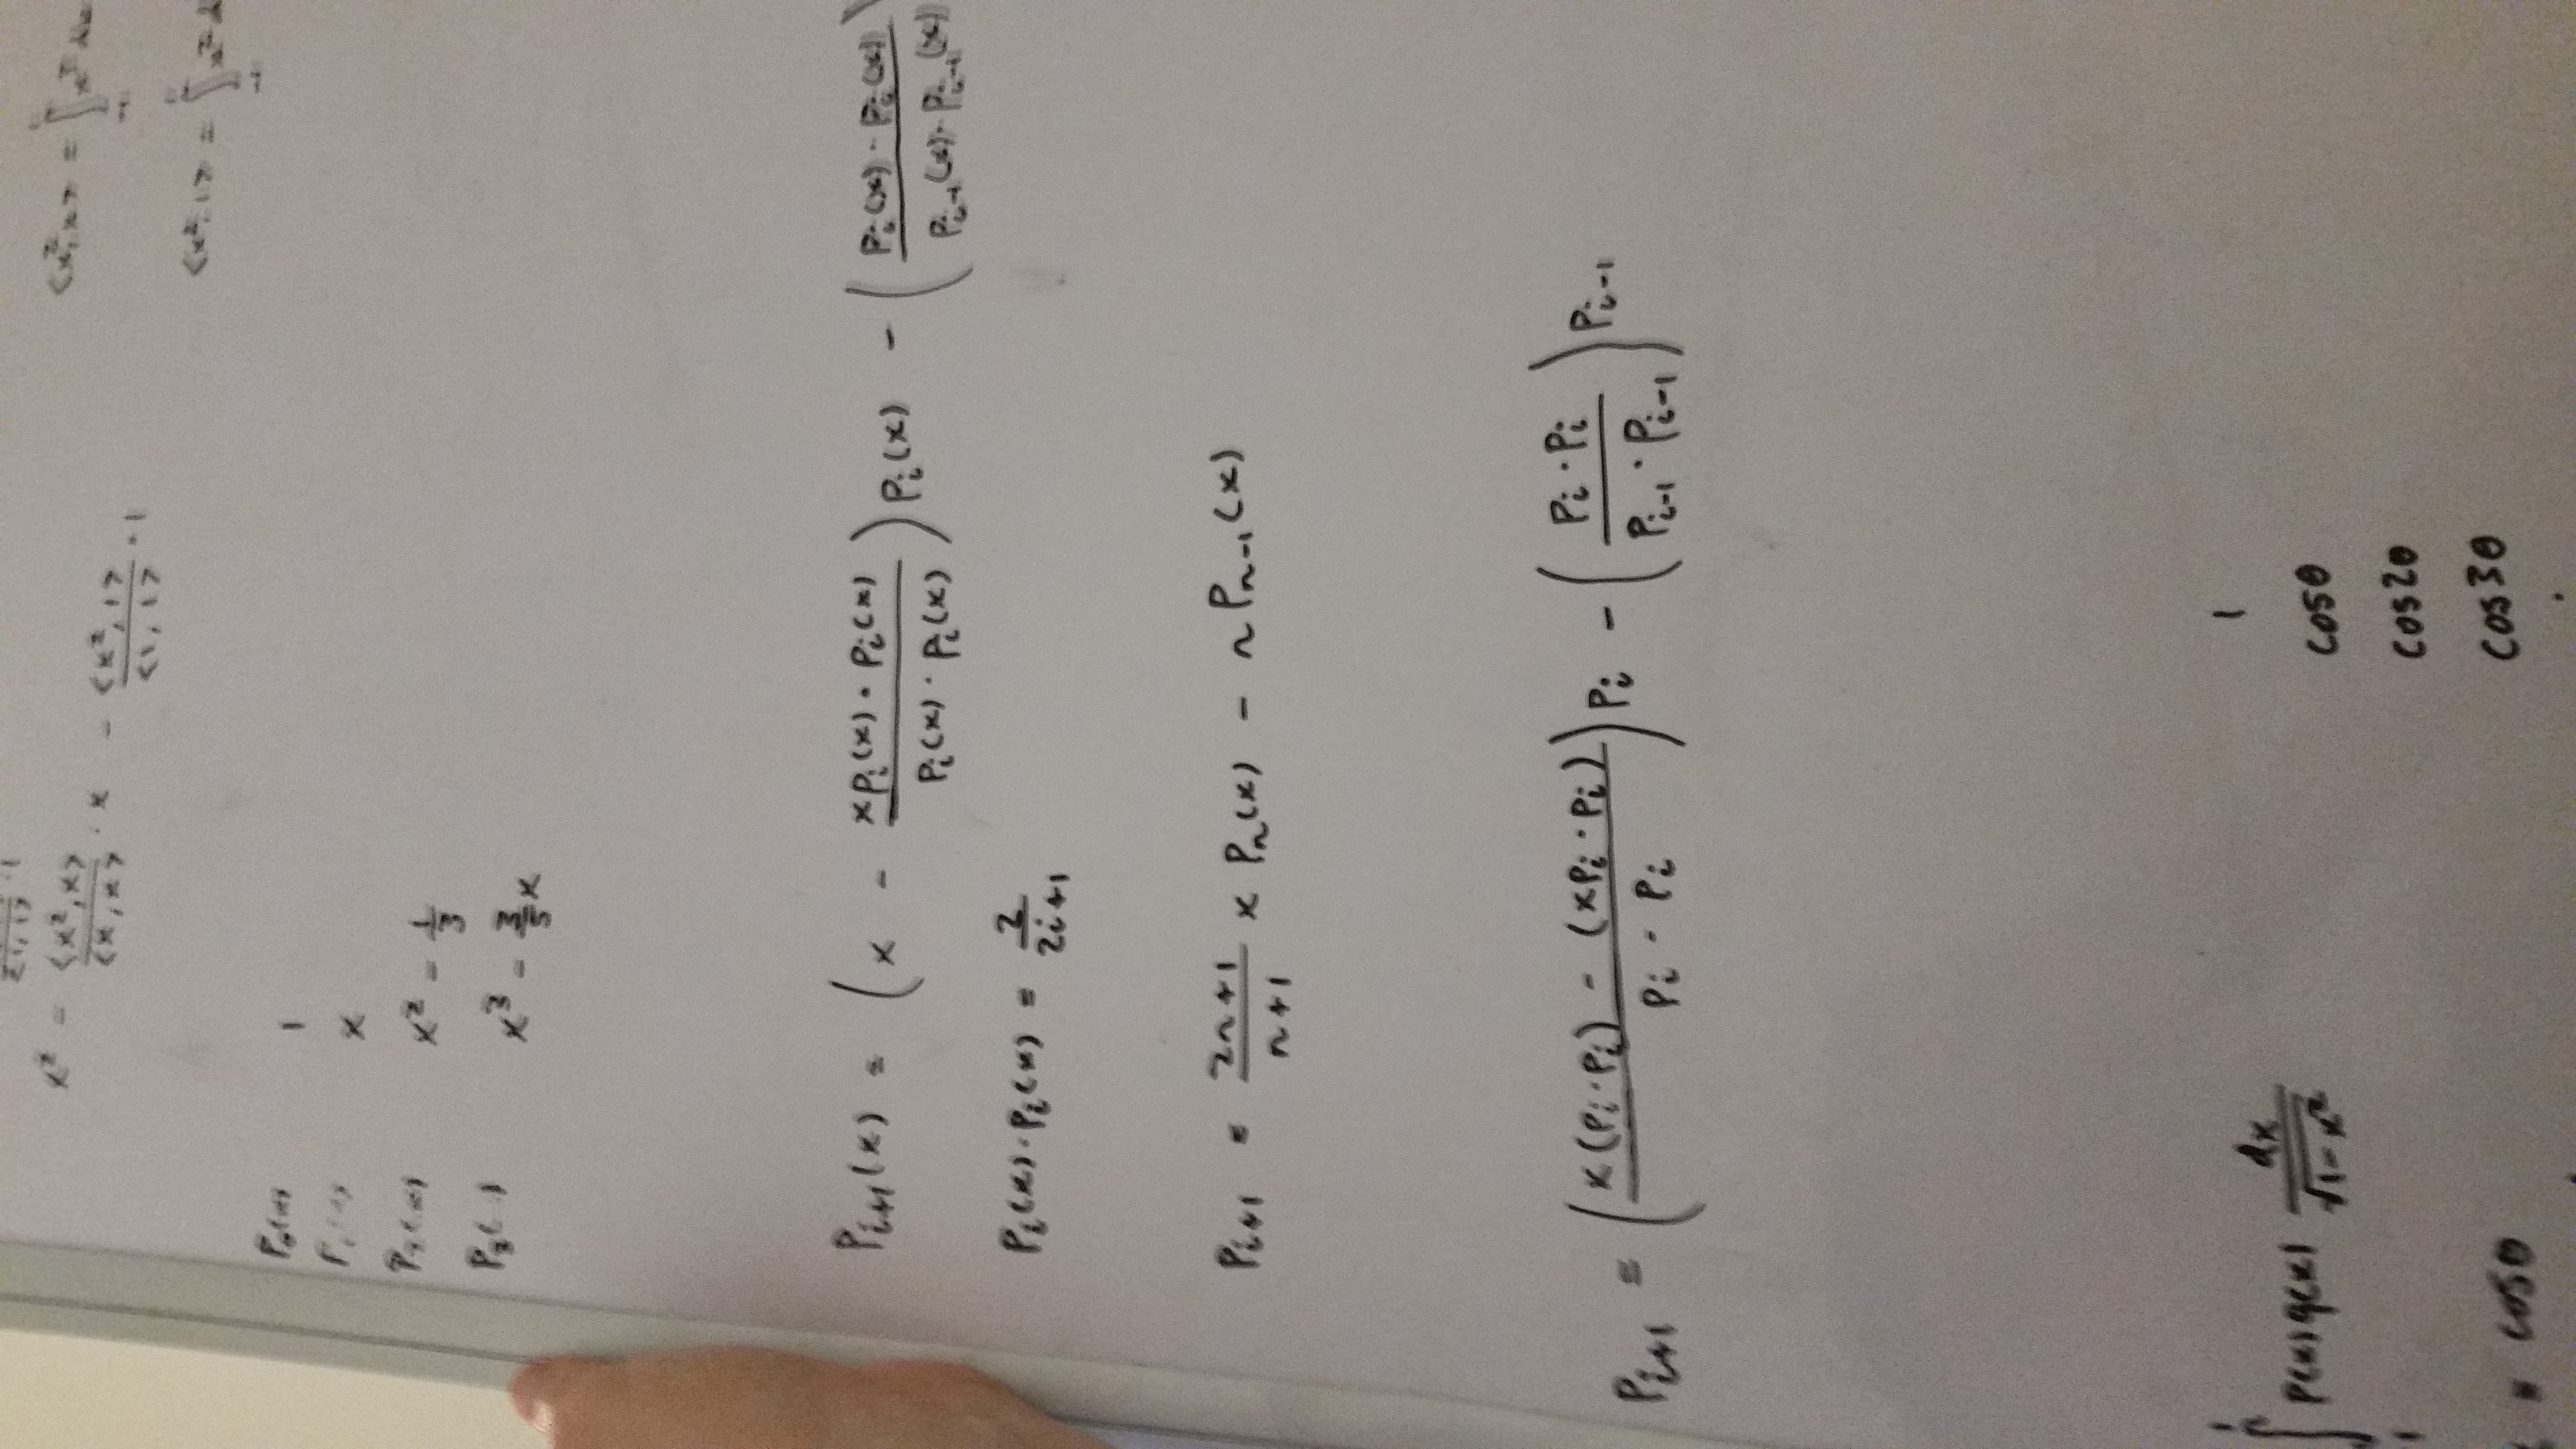 <1,1> · 1
x² - <x²,x>/<x,x> · x - <x²,1>/<1,1> · 1
<x²,x> = ∫ x³ dx
<x²,1> = ∫ x² d
P₀(x) 1
P₁(x) x
P₂(x) x² - 1/3
P₃( ) x³ - 3/5 x
Pᵢ₊₁(x) = (x - xpᵢ(x) · pᵢ(x) / pᵢ(x) · pᵢ(x)) pᵢ(x) - (pᵢ(x) · pᵢ(x) / pᵢ₋₁(x) · pᵢ₋₁(x))
Pᵢ(x) · Pᵢ(x) = 2/2i+1
Pᵢ₊₁ = 2n+1/n+1 x Pₙ(x) - nPₙ₋₁(x)
Pᵢ₊₁ = (x(pᵢ · pᵢ) - (xpᵢ · pᵢ) / pᵢ · pᵢ) pᵢ - (pᵢ · pᵢ / pᵢ₋₁ · pᵢ₋₁) pᵢ₋₁
∫ p(x)q(x) dx/√1-x²
= cosθ
1
cosθ
cos2θ
cos3θ